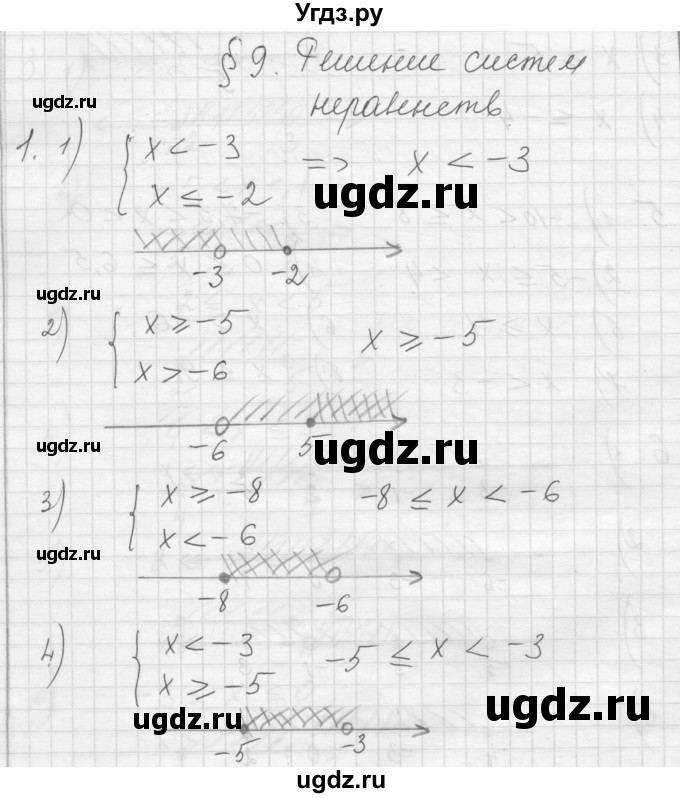 Угдз.ру
§ 9. Решение систем
неравенств.
ugdz.ru
1. 1) { x < -3 => x < -3
x ≤ -2
ugdz.ru
-3 -2
ugdz.ru
2) { x ≥ -5 x ≥ -5
x > -6
-6 5
ugdz.ru
ugdz.ru
3) { x ≥ -8 -8 ≤ x < -6
x < -6
ugdz.ru
-8 -6
4) { x < -3 -5 ≤ x < -3
x ≥ -5
ugdz.ru
ugdz.ru
-5 -3
ugdz.ru